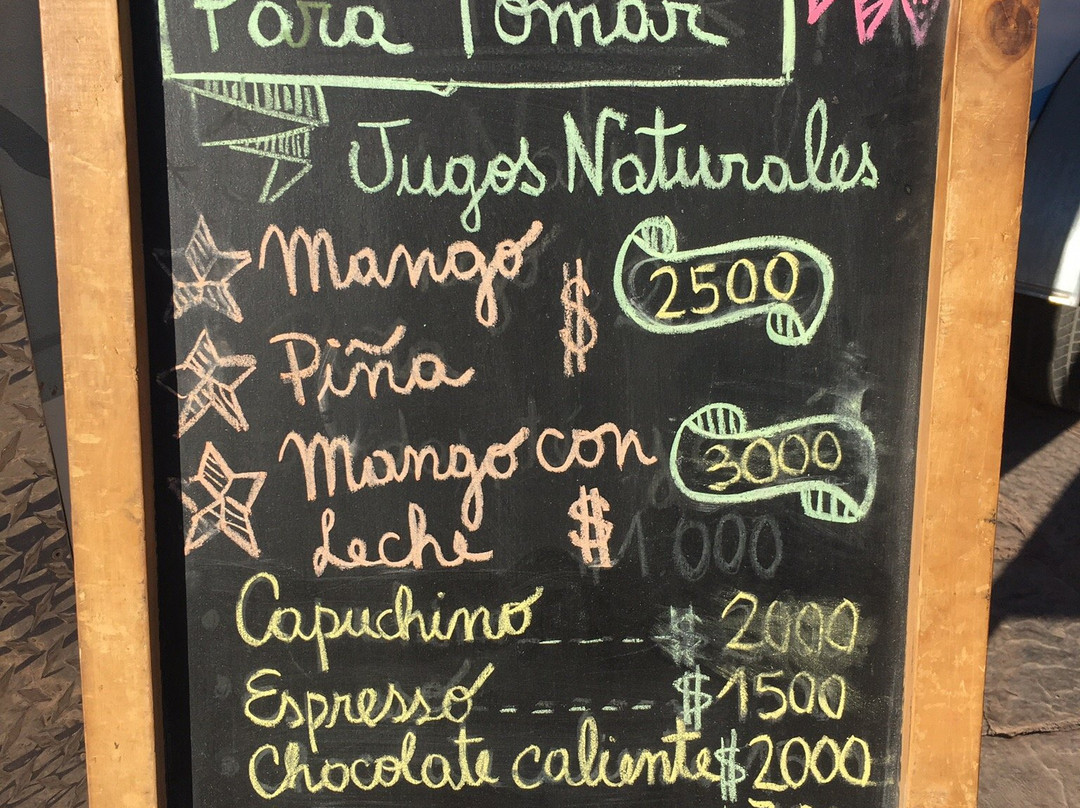 Para Tomar
Jugos Naturales
Mango
$ 2500
Piña
Mango con
3000
Leche $
1.000
Capuchino ------ $ 2000
Espresso ------- $ 1500
Chocolate caliente $ 2000